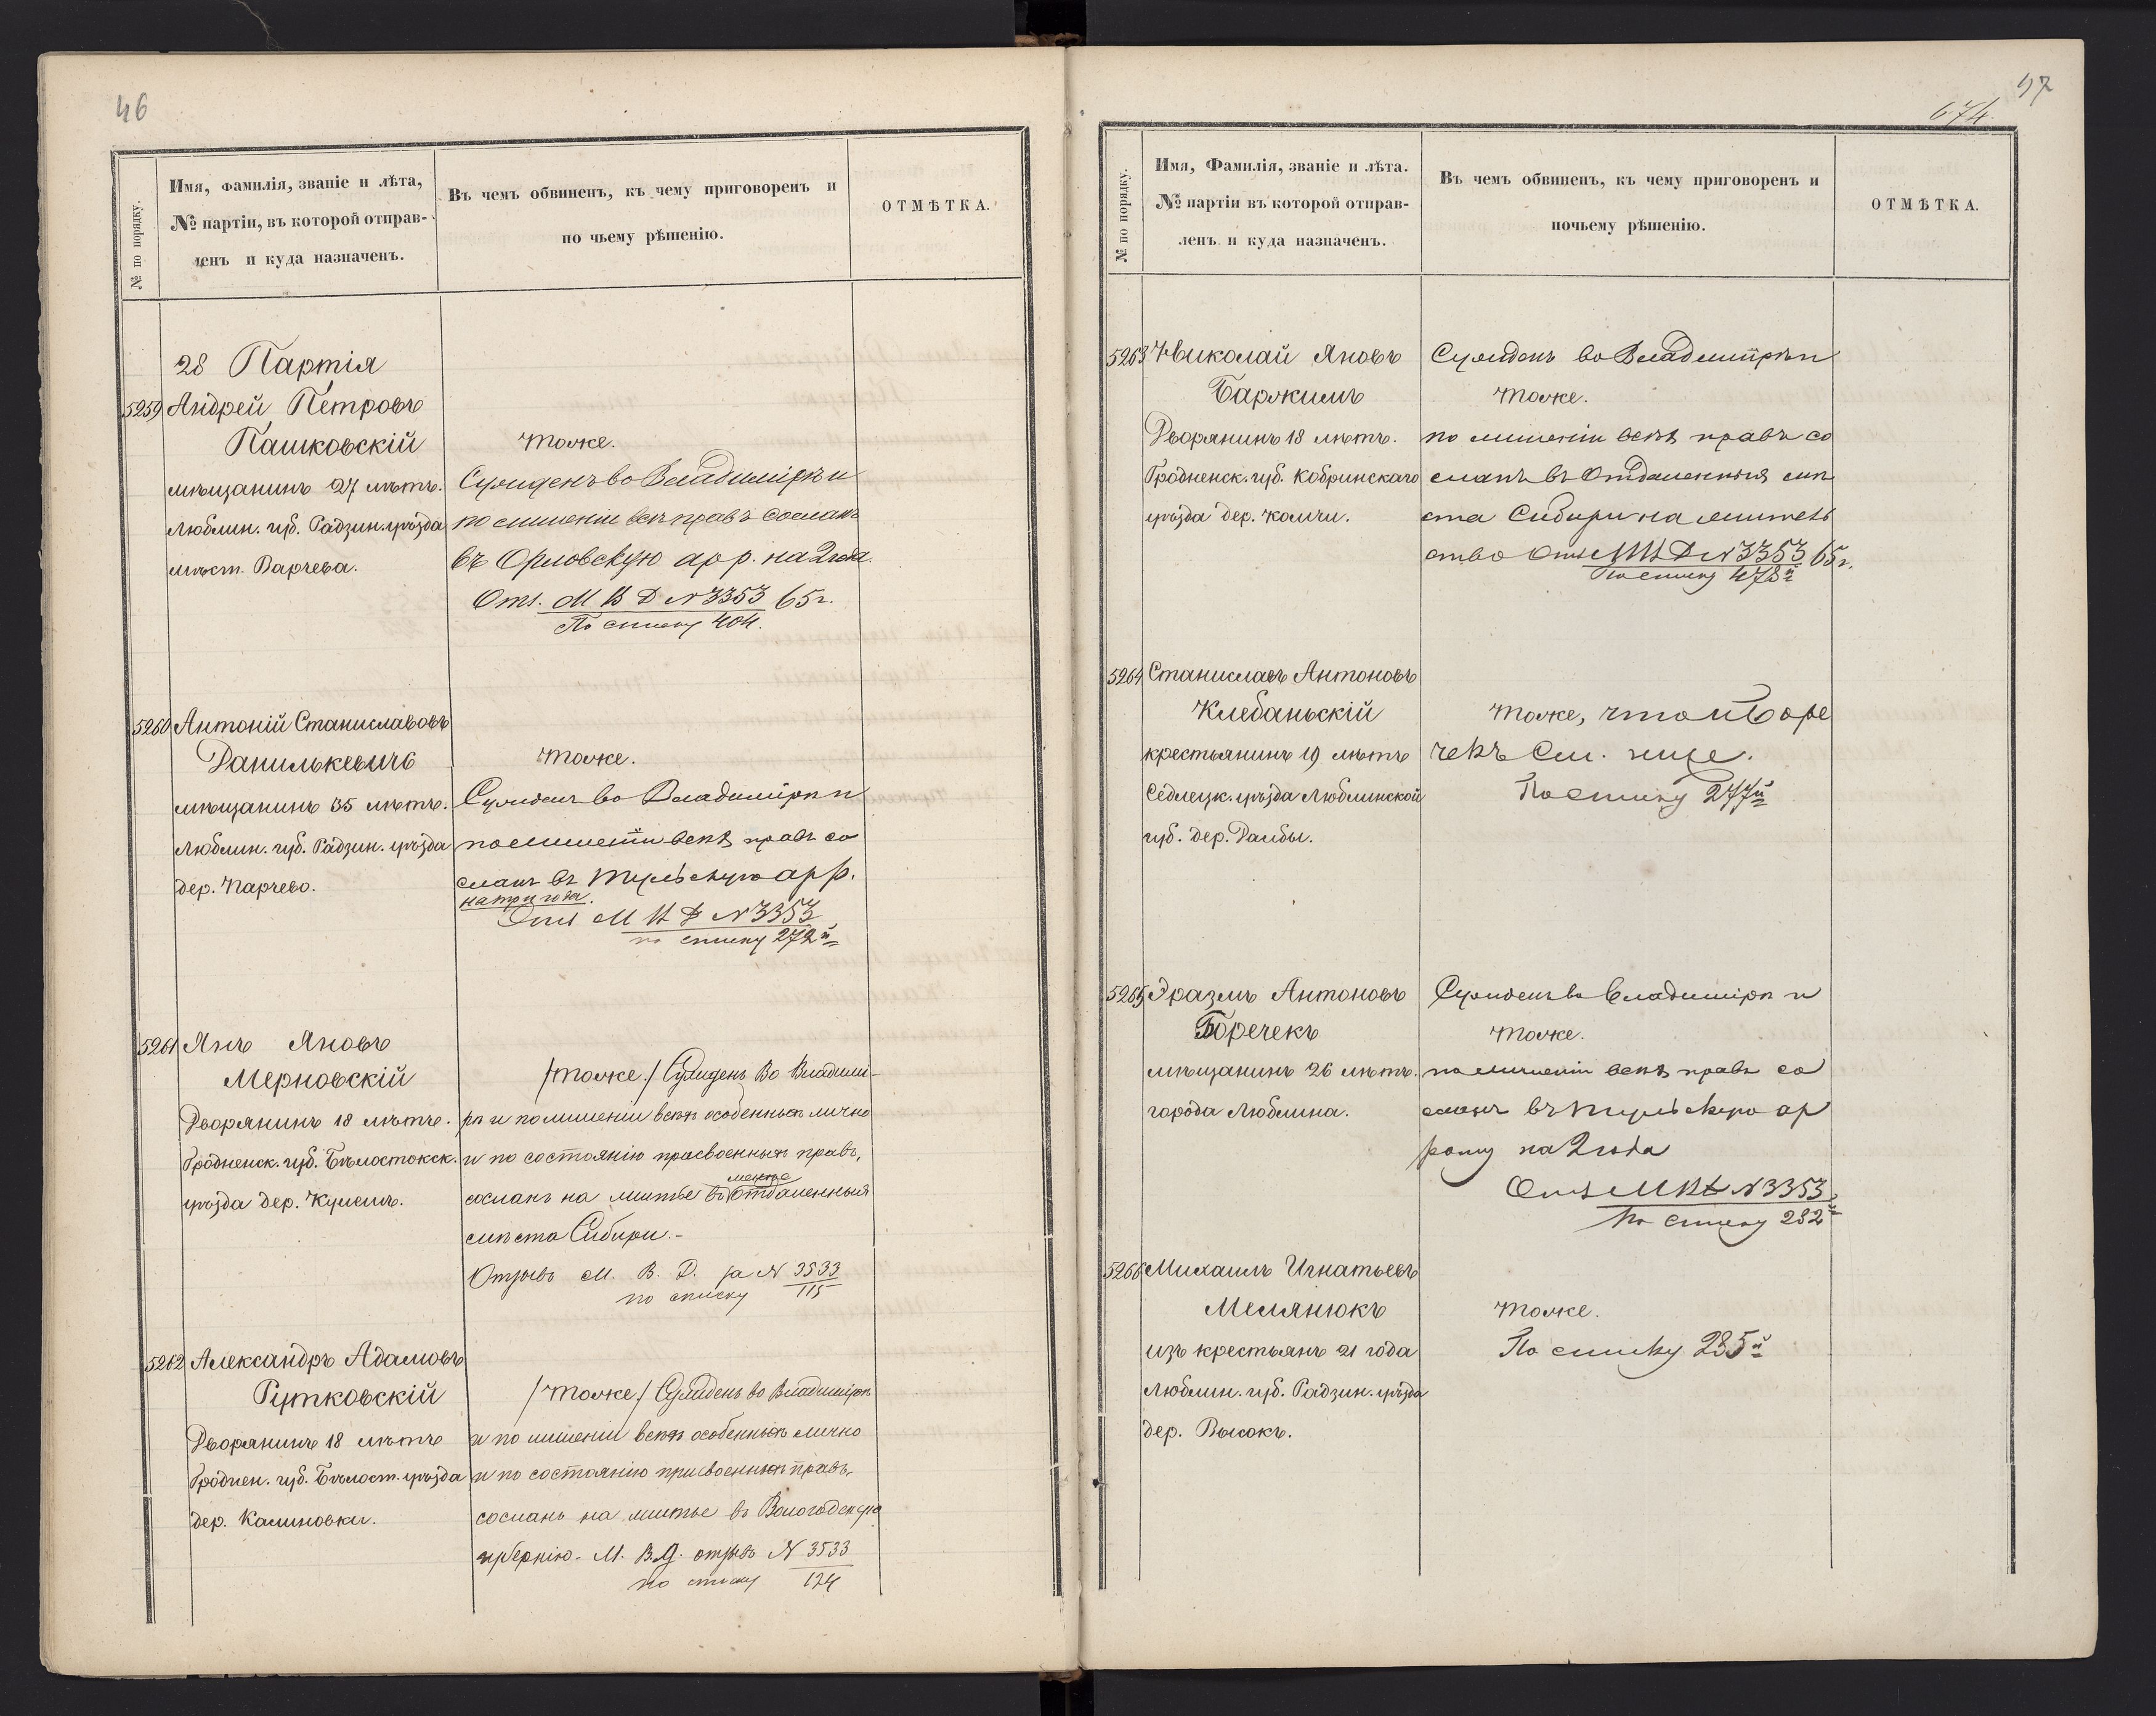 46
№ по порядку.
Имя, фамилія, званіе и лѣта,
№ партіи, въ которой отправ-
ленъ и куда назначенъ.
Въ чемъ обвиненъ, къ чему приговоренъ и
по чьему рѣшенію.
ОТМѢТКА.
28 Партія
5259 Андрей Петровъ
Пашковскій
мѣщанинъ 27 лѣтъ.
Люблин. губ. Радзин. уѣзда
мѣст. Парчева.
тоже.
Сужденъ во Владимірѣ и
по лишеніи всѣхъ правъ сосланъ
въ Орловскую ар р. на 2 года.
Отз. М В Д № 3353 65 г.
По списку 404.
5260 Антоній Станиславовъ
Данилькевичъ
мѣщанинъ 35 лѣтъ.
Люблин. губ. Радзин. уѣзда
дер. Парчево.
тоже.
Сужденъ во Владимірѣ и
по лишеніи всѣхъ правъ со
сланъ въ Тульскую ар р.
на три года.
Отз М В Д № 3353
по списку 272й
5261 Янъ Яновъ
Мерновскій
Дворянинъ 18 лѣтъ.
Гродненск. губ. Бѣлостокск.
уѣзда дер.
/тоже./ Сужденъ Во Владими-
рѣ и по лишеніи всѣхъ особенныхъ лично
и по состоянію присвоенныхъ правъ,
сосланъ на житье въ менѣе отдаленныя
мѣста Сибири.-
Отзывъ М. В. Д. за № 3533
по списку 115
5262 Александръ Адамовъ
Рутковскій
Дворянинъ 18 лѣтъ
Гроднен. губ. Бѣлост. уѣзда
дер. Калиновки.
/тоже/ Сужденъ во Владимірѣ
и по лишеніи всѣхъ особенныхъ лично
и по состоянію присвоенныхъ правъ,
сосланъ на житье въ Вологодскую
губернію. М. В. Д. отзывъ № 3533
по списку 124
97
674.
№ по порядку.
Имя, Фамилія, званіе и лѣта.
№ партіи въ которой отправ-
ленъ и куда назначенъ.
Въ чемъ обвиненъ, къ чему приговоренъ и
почьему рѣшенію.
ОТМѢТКА.
5263 Николай Яновъ
Баржимъ
Дворянинъ 18 лѣтъ.
Гродненск. губ. Кобринскаго
уѣзда дер.
Сужденъ во Владимірѣ и
тоже.
по лишеніи всѣхъ правъ со
сланъ въ Отдаленныя мѣ
ста Сибири на жительс
ство Отз М В Д № 3353 65 г.
По списку 478й
5264 Станиславъ Антоновъ
Клебаньскій
крестьянинъ 19 лѣтъ
Седлецк. уѣзда Люблинской
губ. дер. Домбы.
тоже, что и Боре
чекъ См. ниже.
По списку 277й
5265 Эразмъ Антоновъ
Боречекъ
мѣщанинъ 26 лѣтъ.
города Люблина.
Сужденъ во Владимірѣ и
тоже.
по лишеніи всѣхъ правъ со
сланъ въ Тульскую ар
роту на 2 года
Отз М В Д № 3353
По списку 282й
5266 Михаилъ Игнатьевъ
Мелянюкъ
изъ крестьянъ 21 года
Люблин. губ. Радзин. уѣзда
дер. Высокъ.
тоже.
По списку 285й